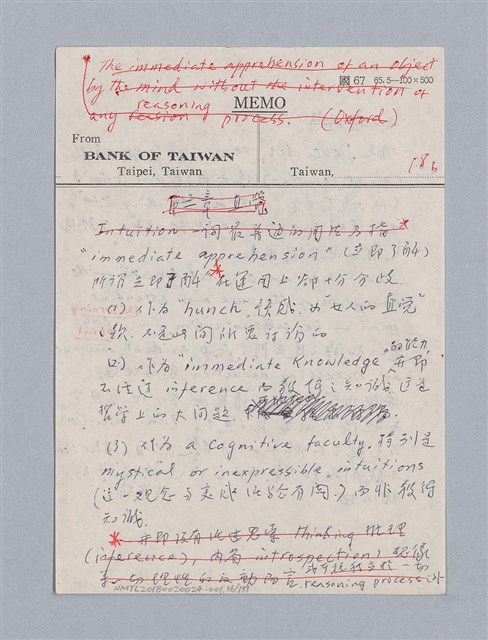 The immediate apprehension of an object
by the mind without the intervention of
reasoning
any reason process. (Oxford)
國 67 65.5—100×500
MEMO
From
BANK OF TAIWAN
Taipei, Taiwan
Taiwan,
18
第三章 直覺
Intuition 一詞最普通的用法乃指
"immediate apprehension" (立即了解)
所謂"立即了解"在運用上却十分分歧
作为 "hunch" 預感, 如"女人的直覺"
不是此間所要討論的
(2) 作为 "immediate knowledge" 的能力, 亦即
不經过 inference 而獲得之知識, 這是
哲学上的大問題
(3) 作为 a cognitive faculty, 特別是
mystical or inexpressible intuitions
(這一观念与美感經验有関.) 而非获得
知識.
亦即没有 thinking 推理
(inference), 内省 introspection, 現象
一切理性的 而言. reasoning process
NMTL20180020024-001.36/151